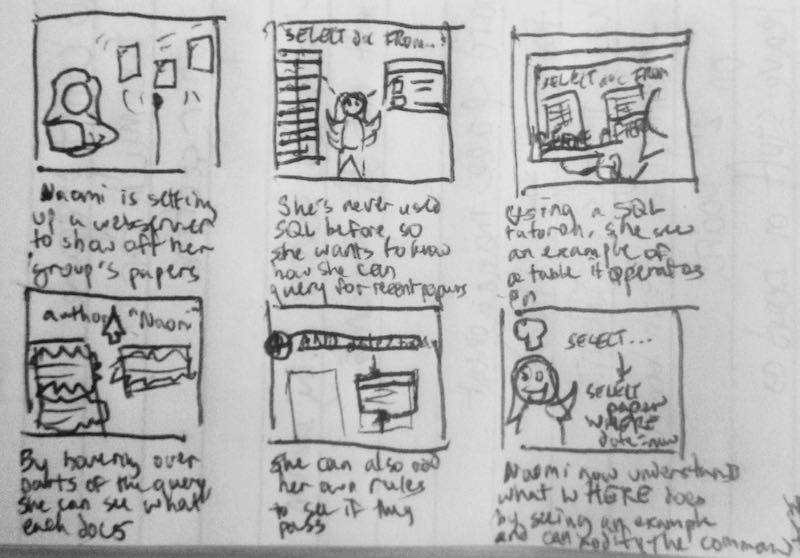 Naomi is setting
up a webserver
to show off her
group's papers
SELECT FROM...
She's never used
SQL before, so
she wants to know
how she can
query for recent papers
SELECT FROM
BEFORE AFTER
Using a SQL
tutorial, she sees
an example of
a table it operates
on
author "Naomi"
By hovering over
parts of the query
she can see what
each does
AND
She can also add
her own rules
to see if they
pass
SELECT...
SELECT
paper
WHERE
date=now
Naomi now understands
what WHERE does
by seeing an example
and can modify the command